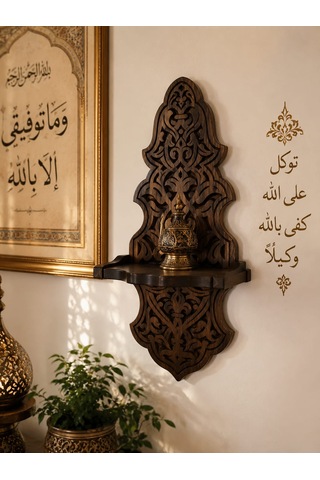 بسم الله الرحمن الرحيم
وما توفيقي
إلا بالله
توكل
على الله
كفى بالله
وكيلاً